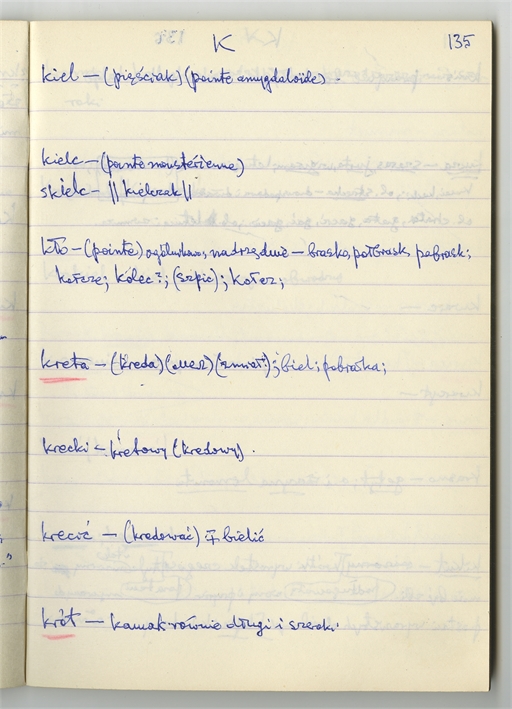 K 135
kiel — (pięściak) (pointe amygdaloïde).
kielc — (pointe moustérienne)
skielc — || kielczak ||
kło — (pointe) ogólnikowo, nadrzędnie — brasko, półbrask, pobrask;
kolec?; (szpic);
kreta — (kreda) ; biel; pobrałka;
krecki < kretowy (kredowy).
krecić — (kredować) bielić
król — kamak równie długi i szeroki.